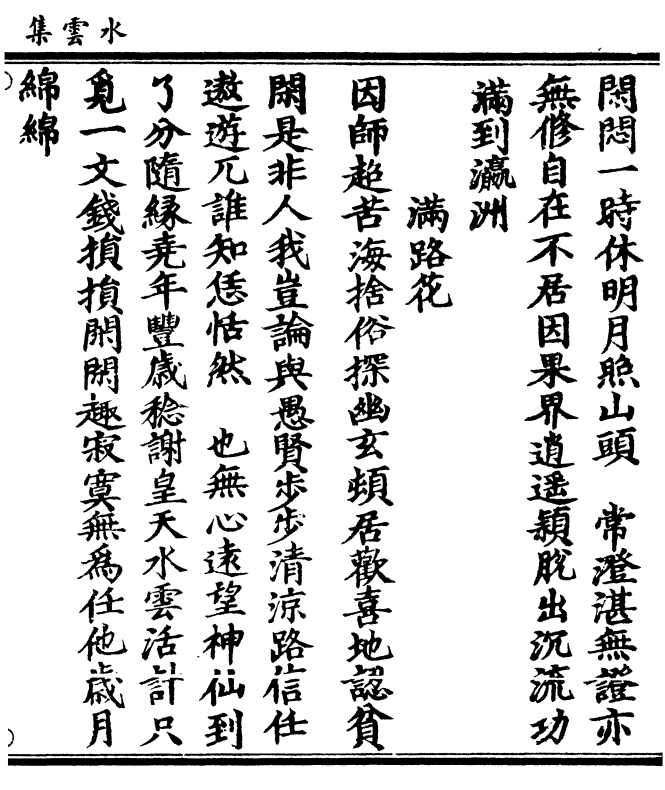 水雲集
閑悶一時休明月照山頭　常澄湛無證亦
無修自在不居因果界逍遥穎脫出沉流功
滿到瀛洲
滿路花
因師超苦海捨俗探幽玄頓居歡喜地認貧
閑是非人我豈論與愚賢步步清涼路信任
遨遊兀誰知恁恬然　也無心遠望神仙到
了分隨緣堯年豐歲稔謝皇天水雲活計只
覓一文錢損損閑閑趣寂寞無為任他歲月
綿綿